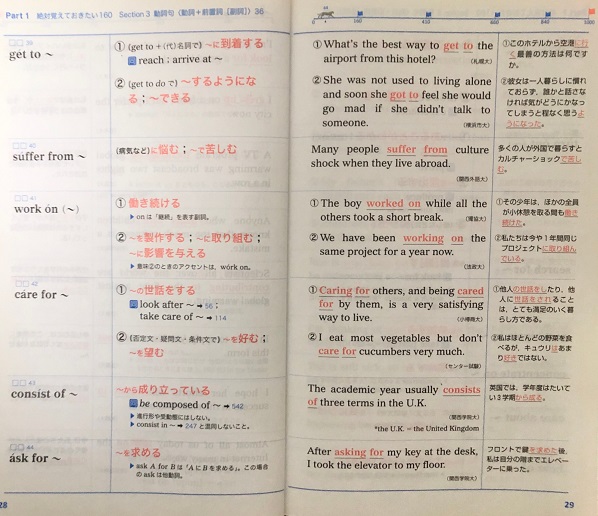 Part 1 絶対覚えておきたい160 Section 3 動詞句〈動詞+前置詞[副詞]〉36
39
get to ～
① (get to +(代)名詞で) ～に到着する
reach ; arrive at ～
② (get to do で) ～するようにな
る;～できる
40
suffer from ～
(病気など)に悩む;～で苦しむ
41
work ón (～)
① 働き続ける
▶ on は「継続」を表す副詞。
② ～を製作する;～に取り組む;
～に影響を与える
▶ 意味②のときのアクセントは, wórk on.
42
cáre for ～
① ～の世話をする
look after ～ ➡ 56 ;
take care of ～ ➡ 114
② (否定文・疑問文・条件文で) ～を好む;
～を望む
43
consíst of ～
～から成り立っている
be composed of ～ ➡ 542
▶ 進行形や受動態にはしない。
▶ consist in ～ ➡ 247 と混同しないこと。
44
ásk for ～
～を求める
▶ ask A for B は「AにBを求める」。この場合
の ask は他動詞。
28
① What's the best way to get to the
airport from this hotel?
(札幌大)
② She was not used to living alone
and soon she got to feel she would
go mad if she didn't talk to
someone.
(横浜市大)
Many people suffer from culture
shock when they live abroad.
(関西外語大)
① The boy worked on while all the
others took a short break.
(獨協大)
② We have been working on the
same project for a year now.
(法政大)
① Caring for others, and being cared
for by them, is a very satisfying
way to live.
(小樽商大)
② I eat most vegetables but don't
care for cucumbers very much.
(センター試験)
The academic year usually consists
of three terms in the U.K.
(関西学院大)
*the U.K. = the United Kingdom
After asking for my key at the desk,
I took the elevator to my floor.
(関西学院大)
①このホテルから空港に行
く最善の方法は何です
か。
②彼女は一人暮らしに慣れ
ておらず, 誰かと話さな
ければ気がどうにかなっ
てしまうと程なく思うよ
うになった。
多くの人が外国で暮らすと
カルチャーショックで苦し
む。
①その少年は, ほかの全員
が小休憩を取る間も働き
続けた。
②私たちは今や1年間同じ
プロジェクトに取り組ん
でいる。
①他人の世話をしたり, 他
人に世話をされることは
, とても満足のいく暮
らし方である。
②私はほとんどの野菜を食
べるが, キュウリはあま
り好きではない。
英国では, 学年度はたいて
い3学期から成る。
フロントで鍵を求めた後,
私は自分の階までエレベー
ターに乗った。
29